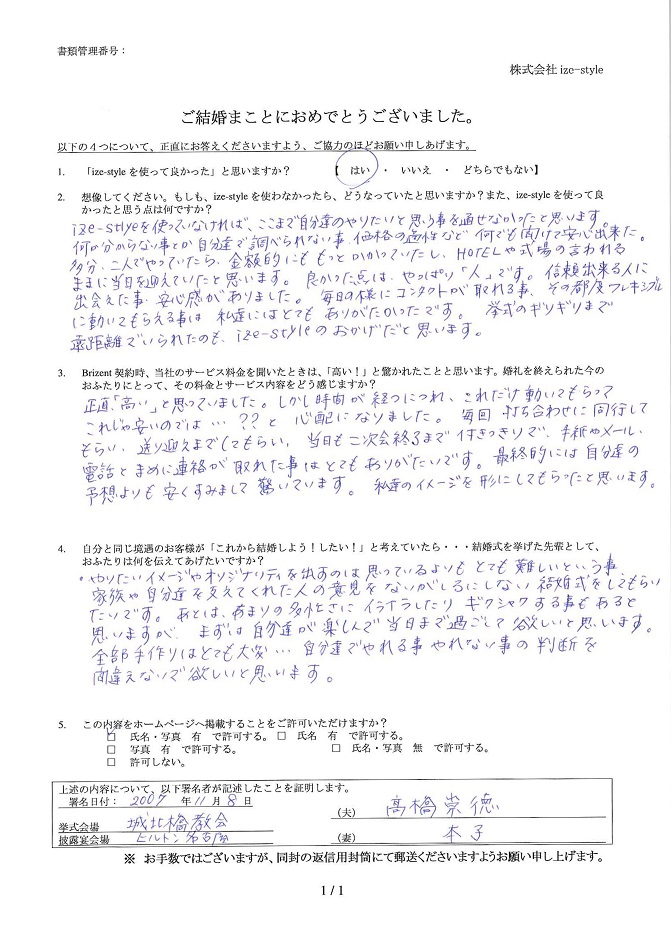 書類管理番号：
株式会社 ize-style
ご結婚まことにおめでとうございました。
以下の４つについて、正直にお答えくださいますよう、ご協力のほどお願い申しあげます。
1. 「ize-style を使って良かった」と思いますか？ 【 はい ・ いいえ ・ どちらでもない】
2. 想像してください。もしも、ize-style を使わなかったら、どうなっていたと思いますか？また、ize-style を使って良
かったと思う点は何ですか？
ize-style を使っていなければ、ここまで自分達のやりたいと思う事を通せなかったと思います。
何が分からない事とか自分達で調べられない事、価格の適性など何でも聞けて安心出来た。
多分、二人でやっていたら、金額的にももっとかかっていたし、HOTELや式場の言われる
ままに当日を迎えていたと思います。良かった点は、やっぱり「人」です。信頼出来る人に
出会えた事、安心感がありました。毎日の様にコンタクトが取れる事、その都度フレキシブル
に動いてもらえる事は私達にはとてもありがたかったです。挙式のギリギリまで
遠距離でいられたのも、ize-styleのおかげだと思います。
3. Brizent 契約時、当社のサービス料金を聞いたときは、「高い！」と驚かれたことと思います。婚礼を終えられた今の
おふたりにとって、その料金とサービス内容をどう感じますか？
正直「高い」と思っていました。しかし時間が経つにつれ、これだけ動いてもらって
これじゃ安いのでは…？？と心配になりました。毎回打ち合わせに同行して
もらい、送り迎えまでしてもらい、当日も二次会終るまで付きっきりで、手紙やメール、
電話とまめに連絡が取れた事はとてもありがたいです。最終的には自分達の
予想よりも安くすみまして驚いています。私達のイメージを形にしてもらったと思います。
4. 自分と同じ境遇のお客様が「これから結婚しよう！したい！」と考えていたら・・・結婚式を挙げた先輩として、
おふたりは何を伝えてあげたいですか？
・やりたいイメージやオリジナリティを出すのは思っているよりもとても難しいという事
家族や自分達を支えてくれた人の意見をないがしろにしない結婚式をしてもらい
たいです。あとは、あまりの多忙さにイライラしたりギクシャクする事もあると
思いますが、まずは自分達が楽しんで当日まで過ごして欲しいと思います。
全部手作りはとても大変…自分達でやれる事やれない事の判断を
間違えないで欲しいと思います。
5. この内容をホームページへ掲載することをご許可いただけますか？
□ 氏名・写真 有 で許可する。 □ 氏名 有 で許可する。
□ 写真 有 で許可する。 □ 氏名・写真 無 で許可する。
□ 許可しない。
上述の内容について、以下署名者が記述したことを証明します。
署名日付： 2007 年 11 月 8 日
（夫） 高橋崇徳
挙式会場 城北橋教会
披露宴会場 ヒルトン名古屋
（妻）
※ お手数ではございますが、同封の返信用封筒にて郵送くださいますようお願い申し上げます。
1 / 1